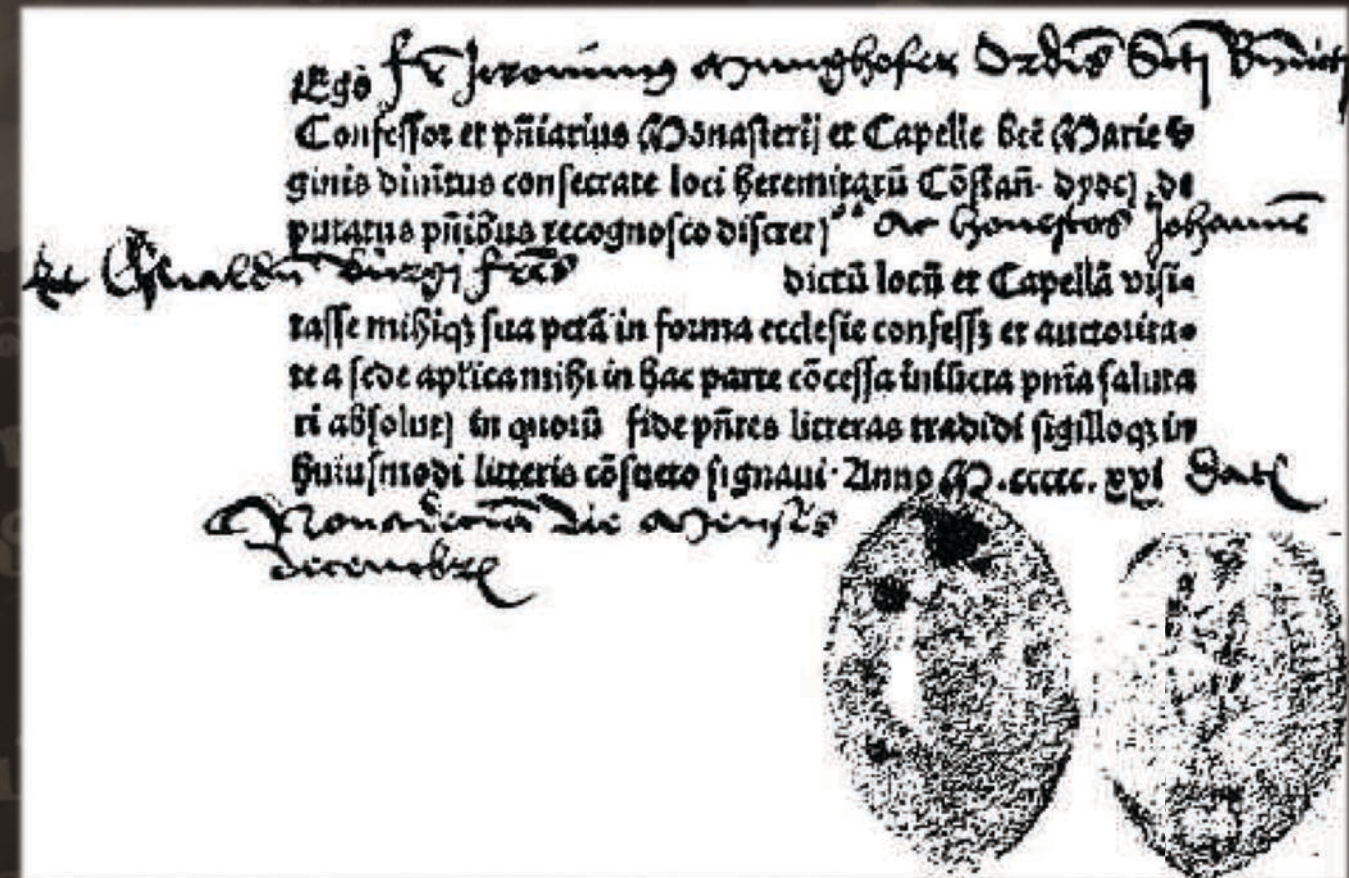 Ego fr Jeronimus Munghofer Ordis Scti Bndicti
Confessor et pñiarius Monasterij et Capelle btē Marie v
ginis diuītus consecrate loci heremitarū Cōstañ. dyoc̄ de
putatus pñibus recognosco discret) ac honestos Johannē
et Oswaldū fr̄es dictū locū et Capellā visi-
tasse mihiq₃ sua pctā in forma ecclesie confess₃ et auctorita-
te a sede aplica mihi in hac parte cōcessa iniuncta pnīa saluta
ri absolut) in quorū fidē pñtes litteras tradidi sigilloq₃ in
huiusmodi litteris cōsueto signaui. Anno M.ccccc.xxi Dat
Nonadecima die Mensis
decembr